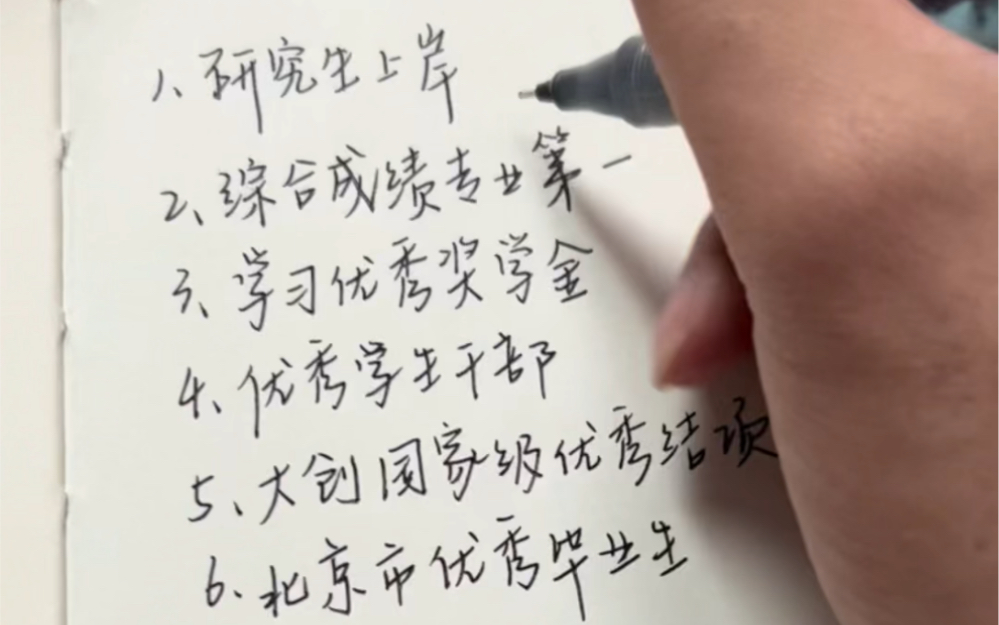 1、研究生上岸
2、综合成绩专业第一
3、学习优秀奖学金
4、优秀学生干部
5、大创国家级优秀结项
6、北京市优秀毕业生